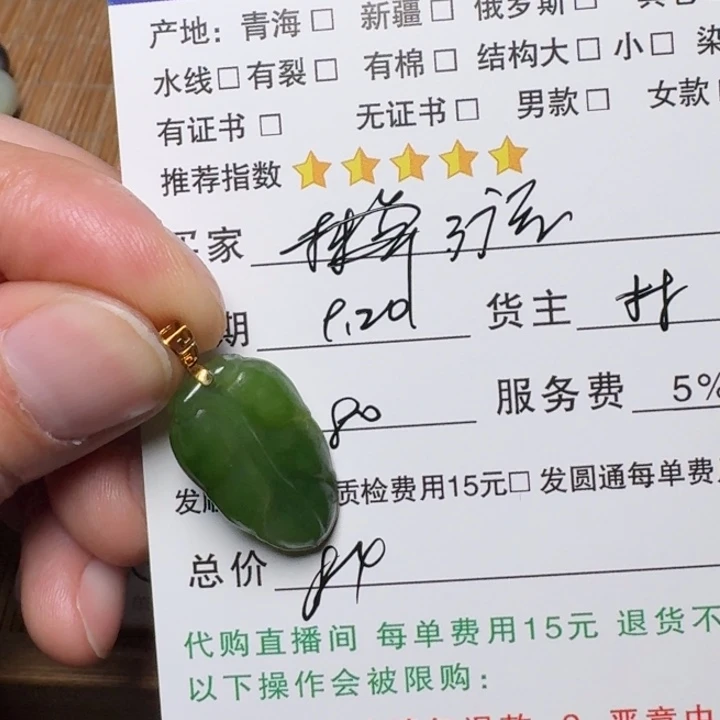 产地：青海□ 新疆□ 俄罗斯□
水线□有裂□ 有棉□ 结构大□ 小□ 染
有证书□ 无证书□ 男款□ 女款
推荐指数
买家
期 9.20 货主
80 服务费 5%
发 质检费用15元□ 发圆通每单费
总价 84
代购直播间 每单费用15元 退货不
以下操作会被限购：